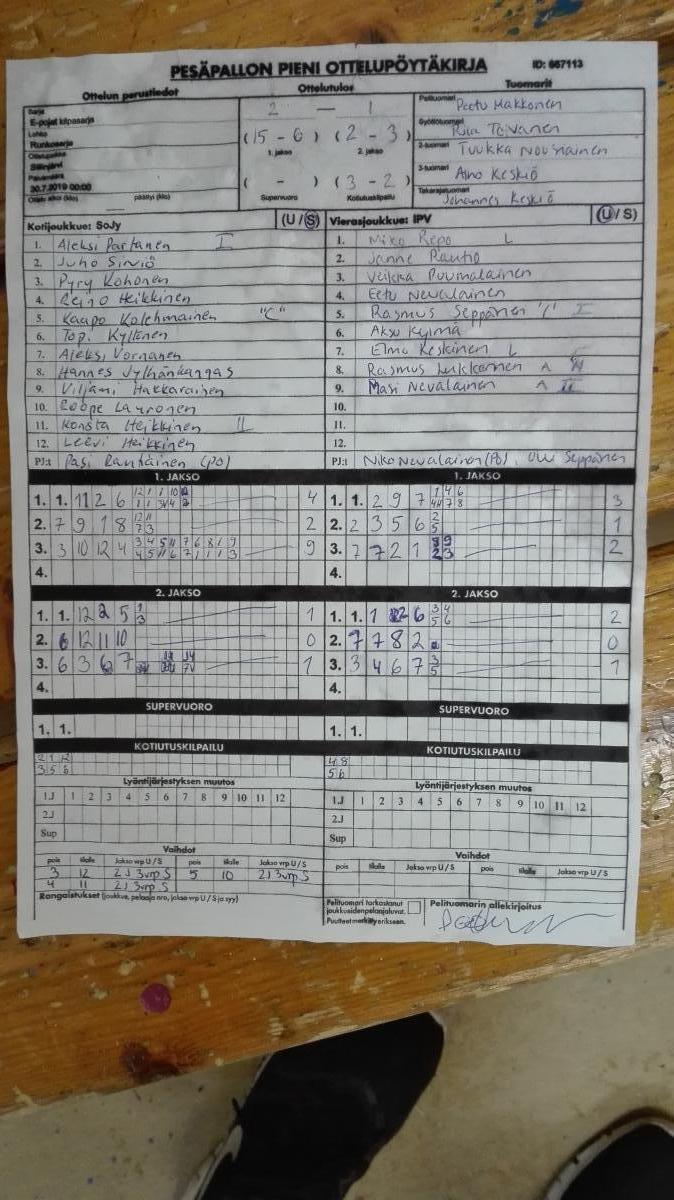 PESÄPALLON PIENI OTTELUPÖYTÄKIRJA ID: 667113
Ottelun perustiedot Ottelutulos Tuomarit
Sarja
E-pojat kilpasarja
Lohko
Runkosarja
Ottelupaikka
Siilinjärvi
Päivämäärä
30.7.2019 00:00
Ottelu alkoi (klo) päättyi (klo)
2 — 1
(15 - 6) (2 - 3)
1. jakso 2. jakso
( - ) (3 - 2)
Supervuoro Kotiutuskilpailu
Pelituomari Peetu Makkonen
Syöttötuomari Toivanen
2-tuomari Tuukka Nousiainen
3-tuomari Aino Keskiö
Takarajatuomari Johannes Keskiö
Kotijoukkue: SoJy (U/S)
1. Aleksi Partanen I
2. Juho Sirviö
3. Pyry Kohonen
4. Reino Heikkinen
5. Kaapo Kolehmainen "C"
6. Topi Kyllönen
7. Aleksi Vornanen
8. Hannes Jylhänkangas
9. Viljami Hakkarainen
10. Eoope Lauronen
11. Konsta Heikkinen II
12. Leevi Heikkinen
PJ:t Pasi Rautiainen (PO)
Vierasjoukkue: IPV (U/S)
1. Niko Repo L
2. Janne Rautio
3. Veikka Puumalainen
4. Eetu Nevalainen
5. Rasmus Seppänen "C" I
6. Aksu Kylmä
7. Elmo Keskinen L
8. Rasmus Lukkarinen A
9. Masi Nevalainen A II
10.
11.
12.
PJ:t Niko Nevalainen (PO), Seppänen
1. JAKSO 1. JAKSO
1. 1. 11 2 6 4
2. 7 9 1 8 2
3. 3 10 12 4 9
4.
1. 1. 2 9 7 3
2. 2 3 5 6 1
3. 7 7 2 1 2
4.
2. JAKSO 2. JAKSO
1. 1. 12 2 5 1
2. 6 12 11 10 0
3. 6 3 6 7 1
4.
1. 1. 1 2 6 2
2. 7 7 8 2 0
3. 3 4 6 7 1
4.
SUPERVUORO SUPERVUORO
1. 1. 1. 1.
KOTIUTUSKILPAILU KOTIUTUSKILPAILU
2 1 12 4 8
3 5 6 5 6
Lyöntijärjestyksen muutos Lyöntijärjestyksen muutos
1J 1 2 3 4 5 6 7 8 9 10 11 12 1J 1 2 3 4 5 6 7 8 9 10 11 12
2J 2J
Sup Sup
Vaihdot Vaihdot
pois tilalle Jakso vrp U / S pois tilalle Jakso vrp U / S pois tilalle Jakso vrp U / S pois tilalle Jakso vrp U / S
3 12 2J 3vrp S 5 10 2J 3vrp S
4 11 2J 3vrp S
Rangaistukset (joukkue, pelaaja nro, jakso vrp U / S ja syy)
Pelituomari tarkastanut
joukkueiden pelaajaluvat.
Puutteet merkitty erikseen.
Pelituomarin allekirjoitus